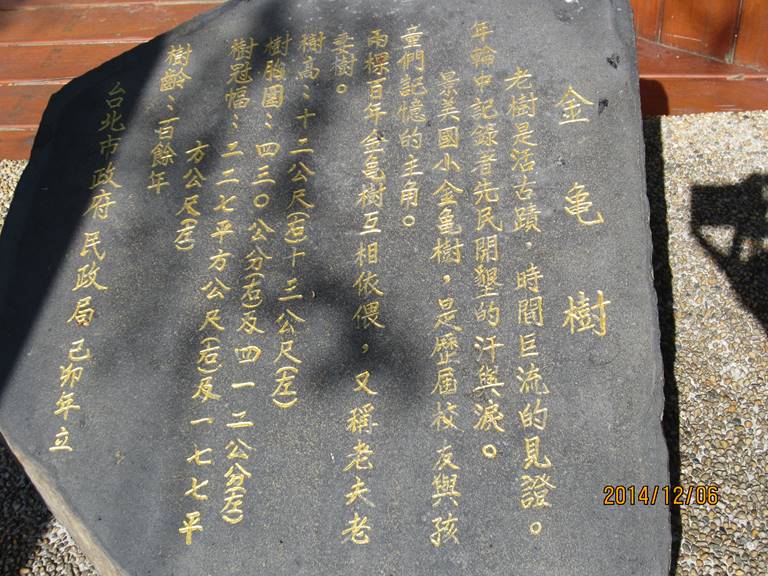 金亀樹
老樹是活古蹟，時間巨流的見證。
年輪中記錄著先民開墾的汗與淚。
景美國小金亀樹，是歷屆校友與孩
童們記憶的主角。
兩棵百年金亀樹互相依偎，又稱老夫老
妻樹。
樹高：十二公尺(右)十三公尺(左)
樹胸圍：四三〇公分(右)及四一二公分(左)
樹冠幅：二二七平方公尺(右)及一七七平
方公尺(左)
樹齡：百餘年
台北市政府民政局 己卯年立
2014/12/06